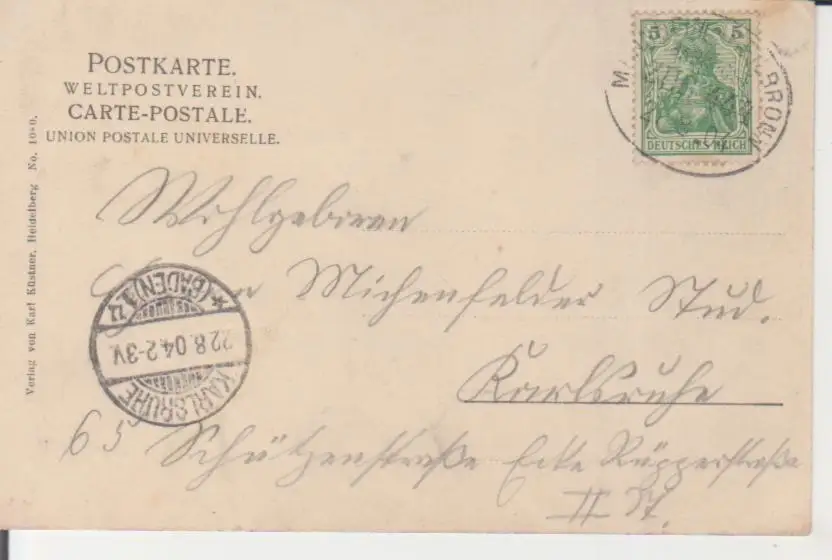 POSTKARTE.
WELTPOSTVEREIN.
CARTE-POSTALE.
UNION POSTALE UNIVERSELLE.
5 5
DEUTSCHES REICH
BRONN
Verlag von Karl Küstner, Heidelberg No. 1080.
Wohlgeboren
Michenfelder Stud.
Karlsruhe
65 Schützenstraße Ecke Rüppurrstraße
II St.
KARLSRUHE
22.8.04.2-3V.
*(BADEN)1.